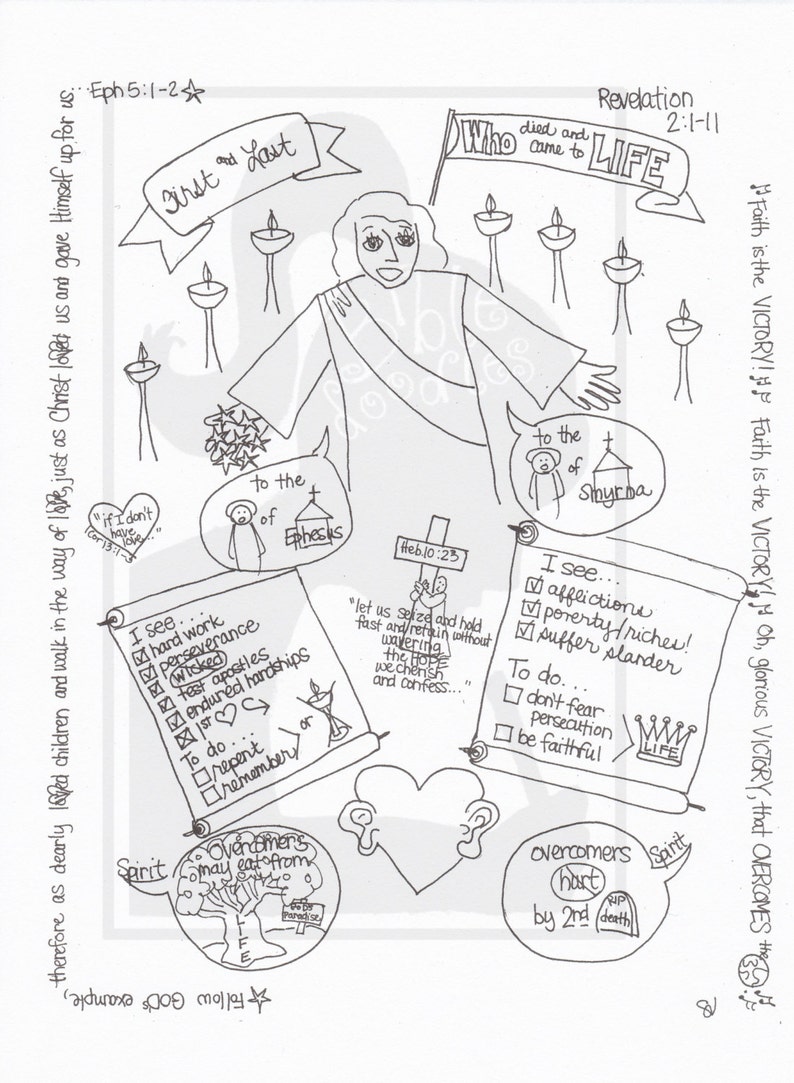 Eph 5:1-2
Revelation
2:1-11
First and Last
Who died and came to LIFE
Bible
doodles
to the
of Ephesus
to the
of Smyrna
"if I don't
have
love..."
1 Cor 13:1-3
Heb. 10:23
"let us seize and hold
fast and retain without
wavering
the HOPE
we cherish
and confess..."
I see....
hard work
perseverance
wicked
test apostles
endured hardships
1st
To do....
repent
remember
or
I see...
afflictions
poverty/riches!
suffer slander
To do...
don't fear
persecution
be faithful
LIFE
Spirit
Overcomers
may eat from
LIFE
GOD'S
Paradise
Spirit
overcomers
hurt
by 2nd
RIP
death
Follow GOD's example,
therefore as dearly loved children and walk in the way of love, just as Christ loved us and gave Himself up for us...
Faith is the VICTORY! Faith is the VICTORY! Oh, glorious VICTORY, that OVERCOMES the